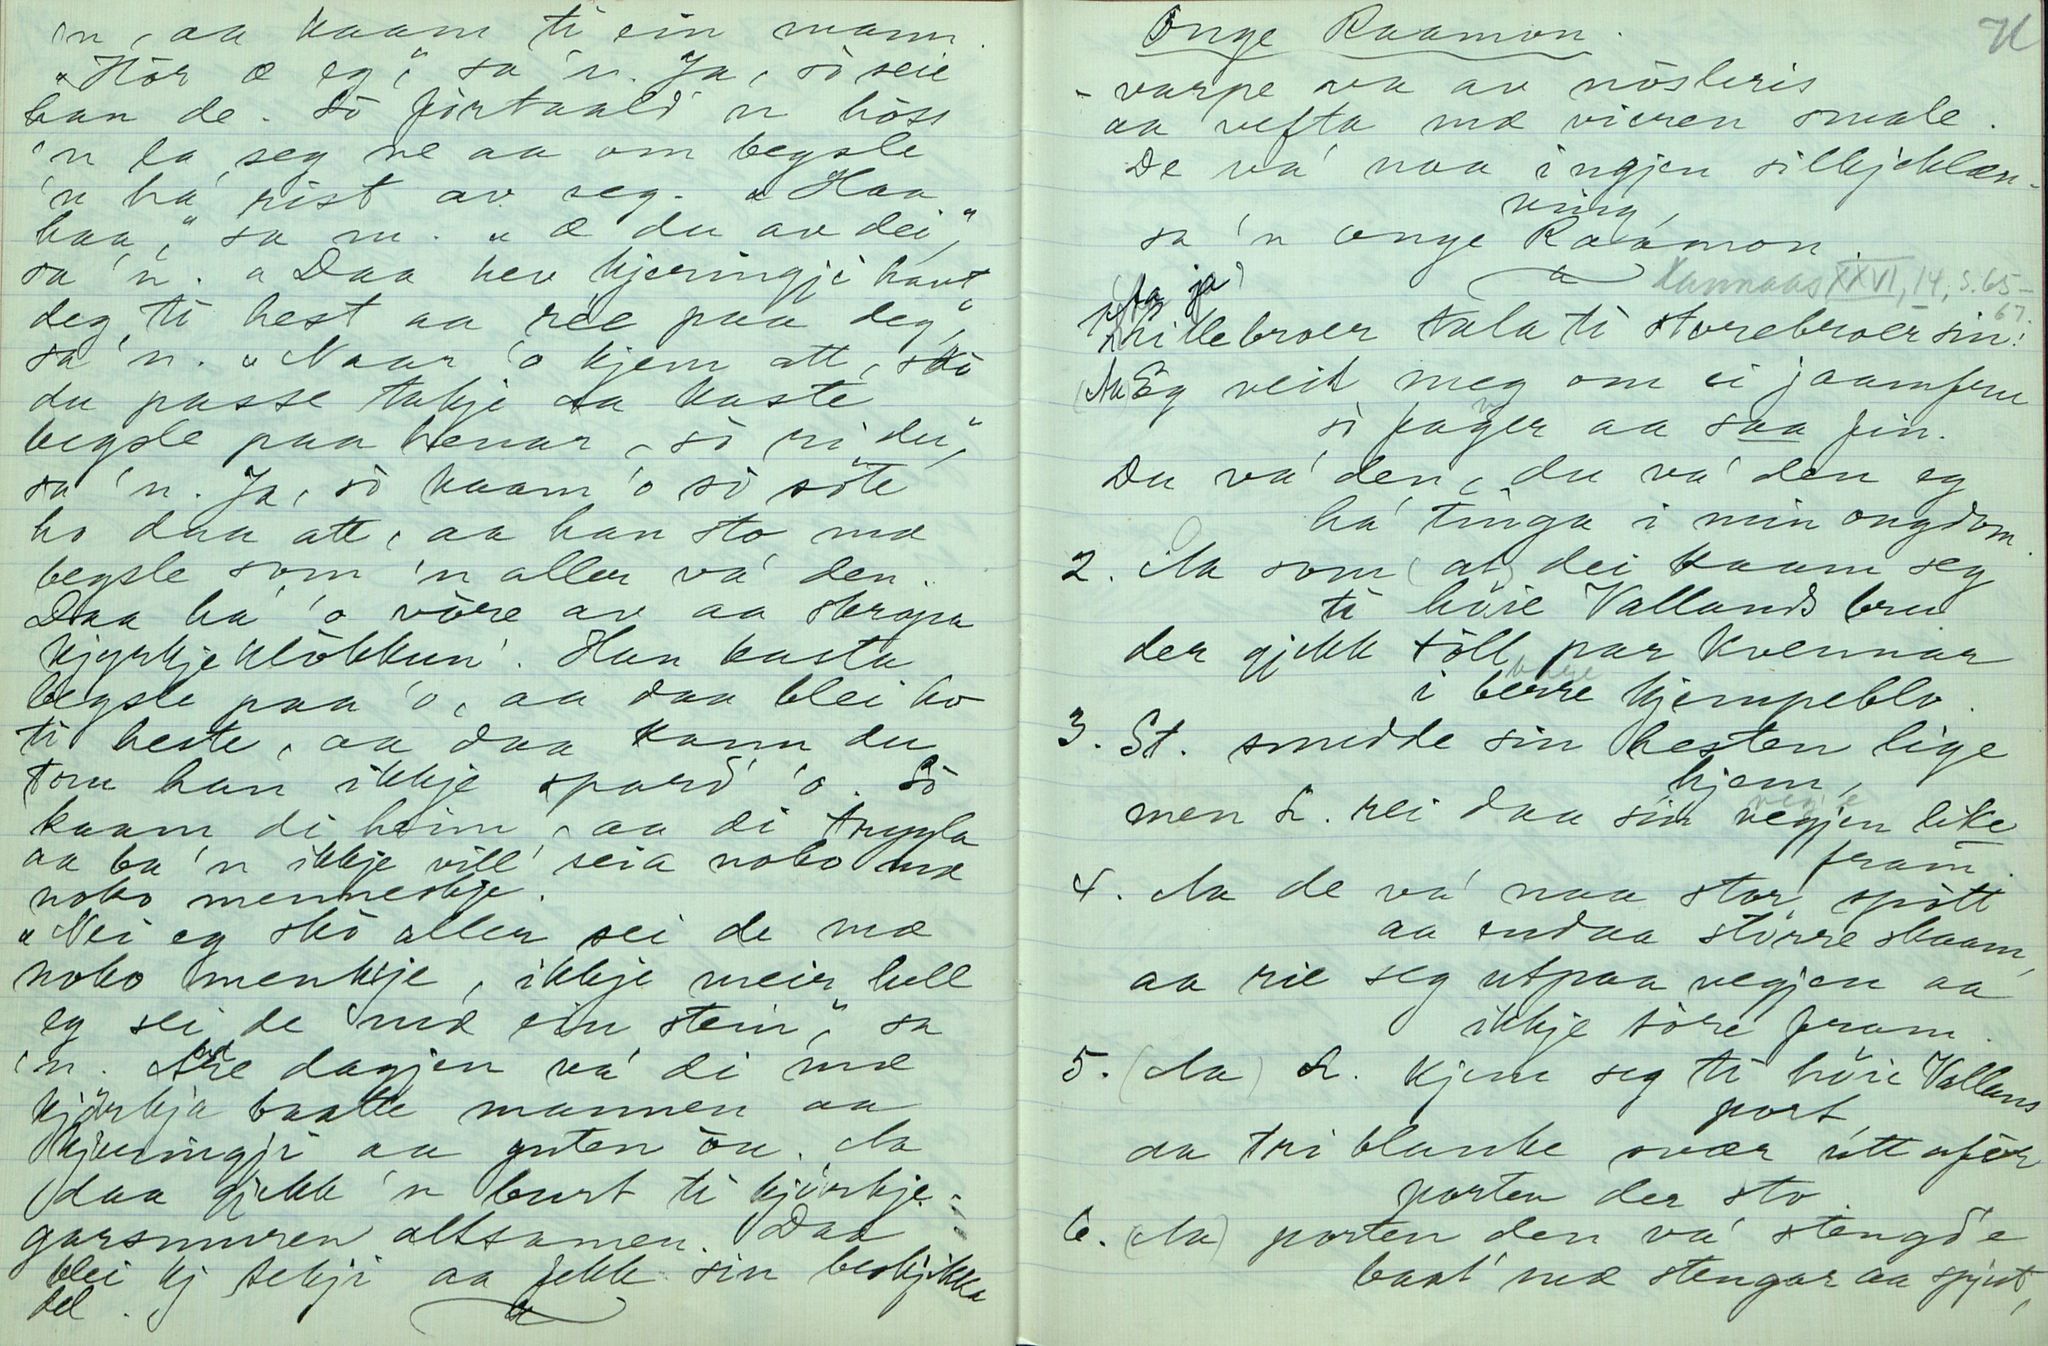 'n, aa kaam ti ein mann.
"Hör æ eg," sa 'n. Ja, so seie
han de. So förtaald' 'n höss
'n la seg ne aa om begsle
'n ha' rist av seg. "Haa
haa," sa 'n. "æ du av dei",
sa 'n. "Daa hev kjeringji havt
deg ti hest aa rie paa deg",
sa 'n. "Naar 'o kjem att, skò
du passe takje aa kaste
begsle paa henar, sò ri du",
sa 'n. Ja, sò kaam 'o sò söte
ho daa att, aa han sto mæ
begsle som 'n aller va' den.
Daa ha' 'o vöre av aa skrapa
kjyrkjeklòkkun'. Han kasta
begsle paa 'o, aa daa blei ho
ti heste, aa daa kann du
tru han ikkje spard' 'o. Sò
kaam di heim, aa di trygla
aa ba 'n ikkje vill' seia noko mæ
noko menneskje.
"Nei eg skò aller sei de mæ
noko menkje, ikkje meir hell
eg sei de mæ ein stein", sa
'n. Are dagjen va' di mæ
kjörkja baatte mannen aa
kjeringji aa guten òu. Aa
daa gjekk 'n burt ti kjörkje-
garsmuren altsamen. Daa
blei kj tekji aa fekk sin beskjikka
del.
Onge Raamon.
- varpe va av nöskris
aa vefta mæ vieren smale.
De va' naa ingjen silkjeklæn-
ning,
sa 'n onge Raamon.
Kannaas XXVI, 14, s. 65-
67.
(Aa ja)
Litlebroer tala ti storebroer sin:
(Aa) Eg veit meg om ei jaamfru
sò fager aa saa fin.
Du va' den, du va' den eg
ha' tinga i min ongdom.
2. Aa som (at) dei kaam seg
ti höie Vallands bru
der gjekk tòll par kvennar
i berre kjempeblo.
3. St. snudde sin hesten lige
hjem,
men L. rei daa sin vegjen like
fram.
4. Aa de va' naa stor spòtt
aa endaa större skaam,
aa rie seg utpaa vegjen aa
ikkje töre fram.
5. (Aa) L. kjem seg ti höie Vallans
port,
aa tri blanke svær utt aför
porten der sto.
6. (Aa) porten den va' stengd'e
baat' mæ stengar aa spjut,